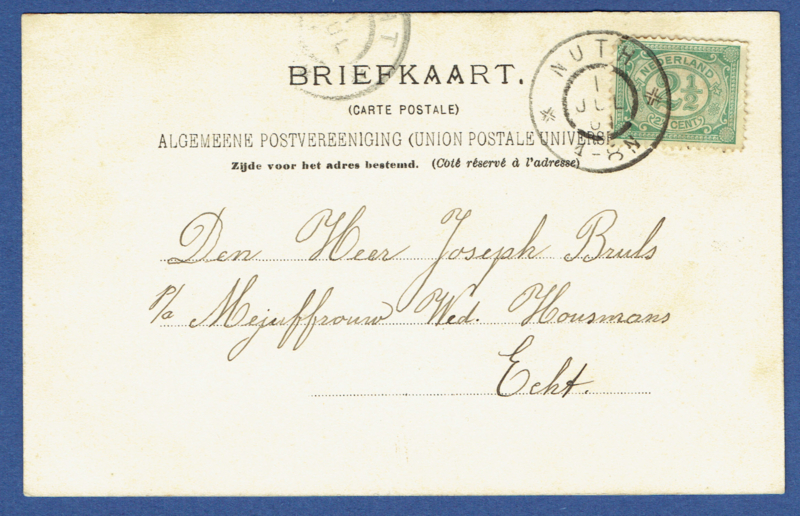 BRIEFKAART.
(CARTE POSTALE)
ALGEMEENE POSTVEREENIGING (UNION POSTALE UNIVERSE
Zijde voor het adres bestemd. (Côté réservé à l'adresse)
NUTH
1
JUL
4-8N
NEDERLAND
2½
(2½ CENT)
HT
JUL
Den Heer Joseph Bruls
p/a Mejuffrouw Wed. Housmans
Echt.